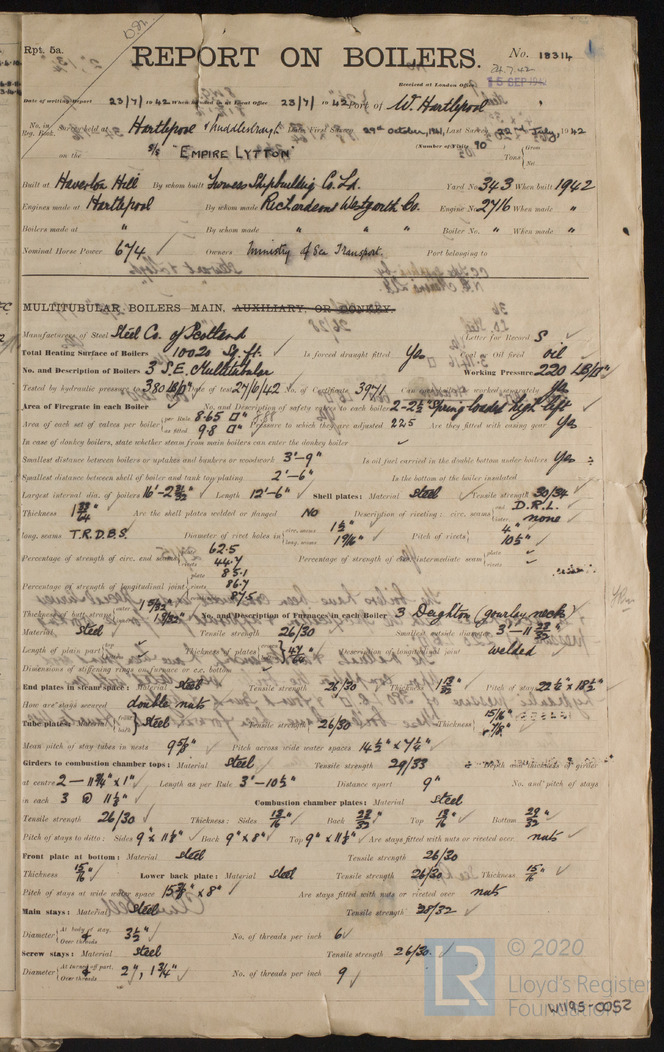 Rpt. 5a.
REPORT ON BOILERS.
No. 18314
24.7.42
Received at London Office
Date of writing Report 23/7/1942 When handed in at Local Office 23/7/1942 Port of W. Hartlepool
No. in Reg. Book. Survey held at Hartlepool & Middlesbrough Date, First Survey 29th October, 1941, Last Survey 22nd July, 1942
on the S/S "EMPIRE LYTTON" (Number of Visits 90) Tons Gross Net
Built at Haverton Hill By whom built Furness Shipbuilding Co. Ld. Yard No. 343 When built 1942
Engines made at Hartlepool By whom made Richardsons Westgarth Co. Engine No. 2716 When made "
Boilers made at " By whom made " " " Boiler No. " When made "
Nominal Horse Power 674 Owners Ministry of Sea Transport. Port belonging to
MULTITUBULAR BOILERS MAIN, AUXILIARY, OR DONKEY.
Manufacturers of Steel Steel Co. of Scotland Letter for Record S
Total Heating Surface of Boilers 10020 Sq. ft. Is forced draught fitted Yes Oil fired oil
No. and Description of Boilers 3 S.E. Multitubular Working Pressure 220 LB/□"
Tested by hydraulic pressure to 380 LB/□" Date of test 27/6/42 No. of Certificate 3971 Can each boiler be worked separately Yes
Area of Firegrate in each Boiler No. and Description of safety valves to each boiler 2-2½" Spring loaded high lift
Area of each set of valves per boiler per Rule 8.65 □" as fitted 9.8 □" Pressure to which they are adjusted 225 Are they fitted with easing gear Yes
In case of donkey boilers, state whether steam from main boilers can enter the donkey boiler
Smallest distance between boilers or uptakes and bunkers or woodwork 3'-9" Is oil fuel carried in the double bottom under boilers Yes
Smallest distance between shell of boiler and tank top plating 2'-6" Is the bottom of the boiler insulated
Largest internal dia. of boilers 16'-2 31/32" Length 12'-6" Shell plates: Material steel Tensile strength 30/34
Thickness Are the shell plates welded or flanged NO Description of riveting: circ. seams end D.R.L. inter. none
long. seams T.R.D.B.S. Diameter of rivet holes in circ. seams 1½" long. seams 1 9/16" Pitch of rivets 4" 10½"
Percentage of strength of circ. end seams plate 62.5 rivets 44.7 Percentage of strength of circ. intermediate seam plate rivets
Percentage of strength of longitudinal joint plate 85.1 rivets 86.7 combined 87.5
Thickness of butt straps outer 1 5/32" inner 1 9/32" No. and Description of Furnaces in each Boiler 3 Deighton (gourley neck)
Material steel Tensile strength 26/30 Smallest outside diameter 3'-11 23/32"
Length of plain part top bottom Thickness of plates Description of longitudinal joint welded
Dimensions of stiffening rings on furnace or c.c. bottom
End plates in steam space: Material steel Tensile strength 26/30 Thickness Pitch of stays 22½" x 18½"
How are stays secured double nuts
Tube plates: Material front back steel Tensile strength 26/30 Thickness 15/16" 7/8"
Mean pitch of stay tubes in nests 9 5/8" Pitch across wide water spaces 14½" x 7¼"
Girders to combustion chamber tops: Material steel Tensile strength 29/33 Depth and thickness of girder
at centre 2-11¾" x 1" Length as per Rule 3'-10½" Distance apart 9" No. and pitch of stays
in each 3 @ 11½" Combustion chamber plates: Material steel
Tensile strength 26/30 Thickness: Sides Back Top Bottom
Pitch of stays to ditto: Sides 9" x 11½" Back 9" x 8" Top 9" x 11½" Are stays fitted with nuts or riveted over nuts
Front plate at bottom: Material steel Tensile strength 26/30
Thickness 15/16" Lower back plate: Material steel Tensile strength 26/30 Thickness 15/16"
Pitch of stays at wide water space x 8" Are stays fitted with nuts or riveted over nuts
Main stays: Material steel Tensile strength 28/32
Diameter At body of stay, or Over threads 3½" No. of threads per inch 6
Screw stays: Material steel Tensile strength 26/30
Diameter At turned off part, or Over threads 2", 1¾" No. of threads per inch 9
© 2020
Lloyd's Register
Foundation
W1195-0052